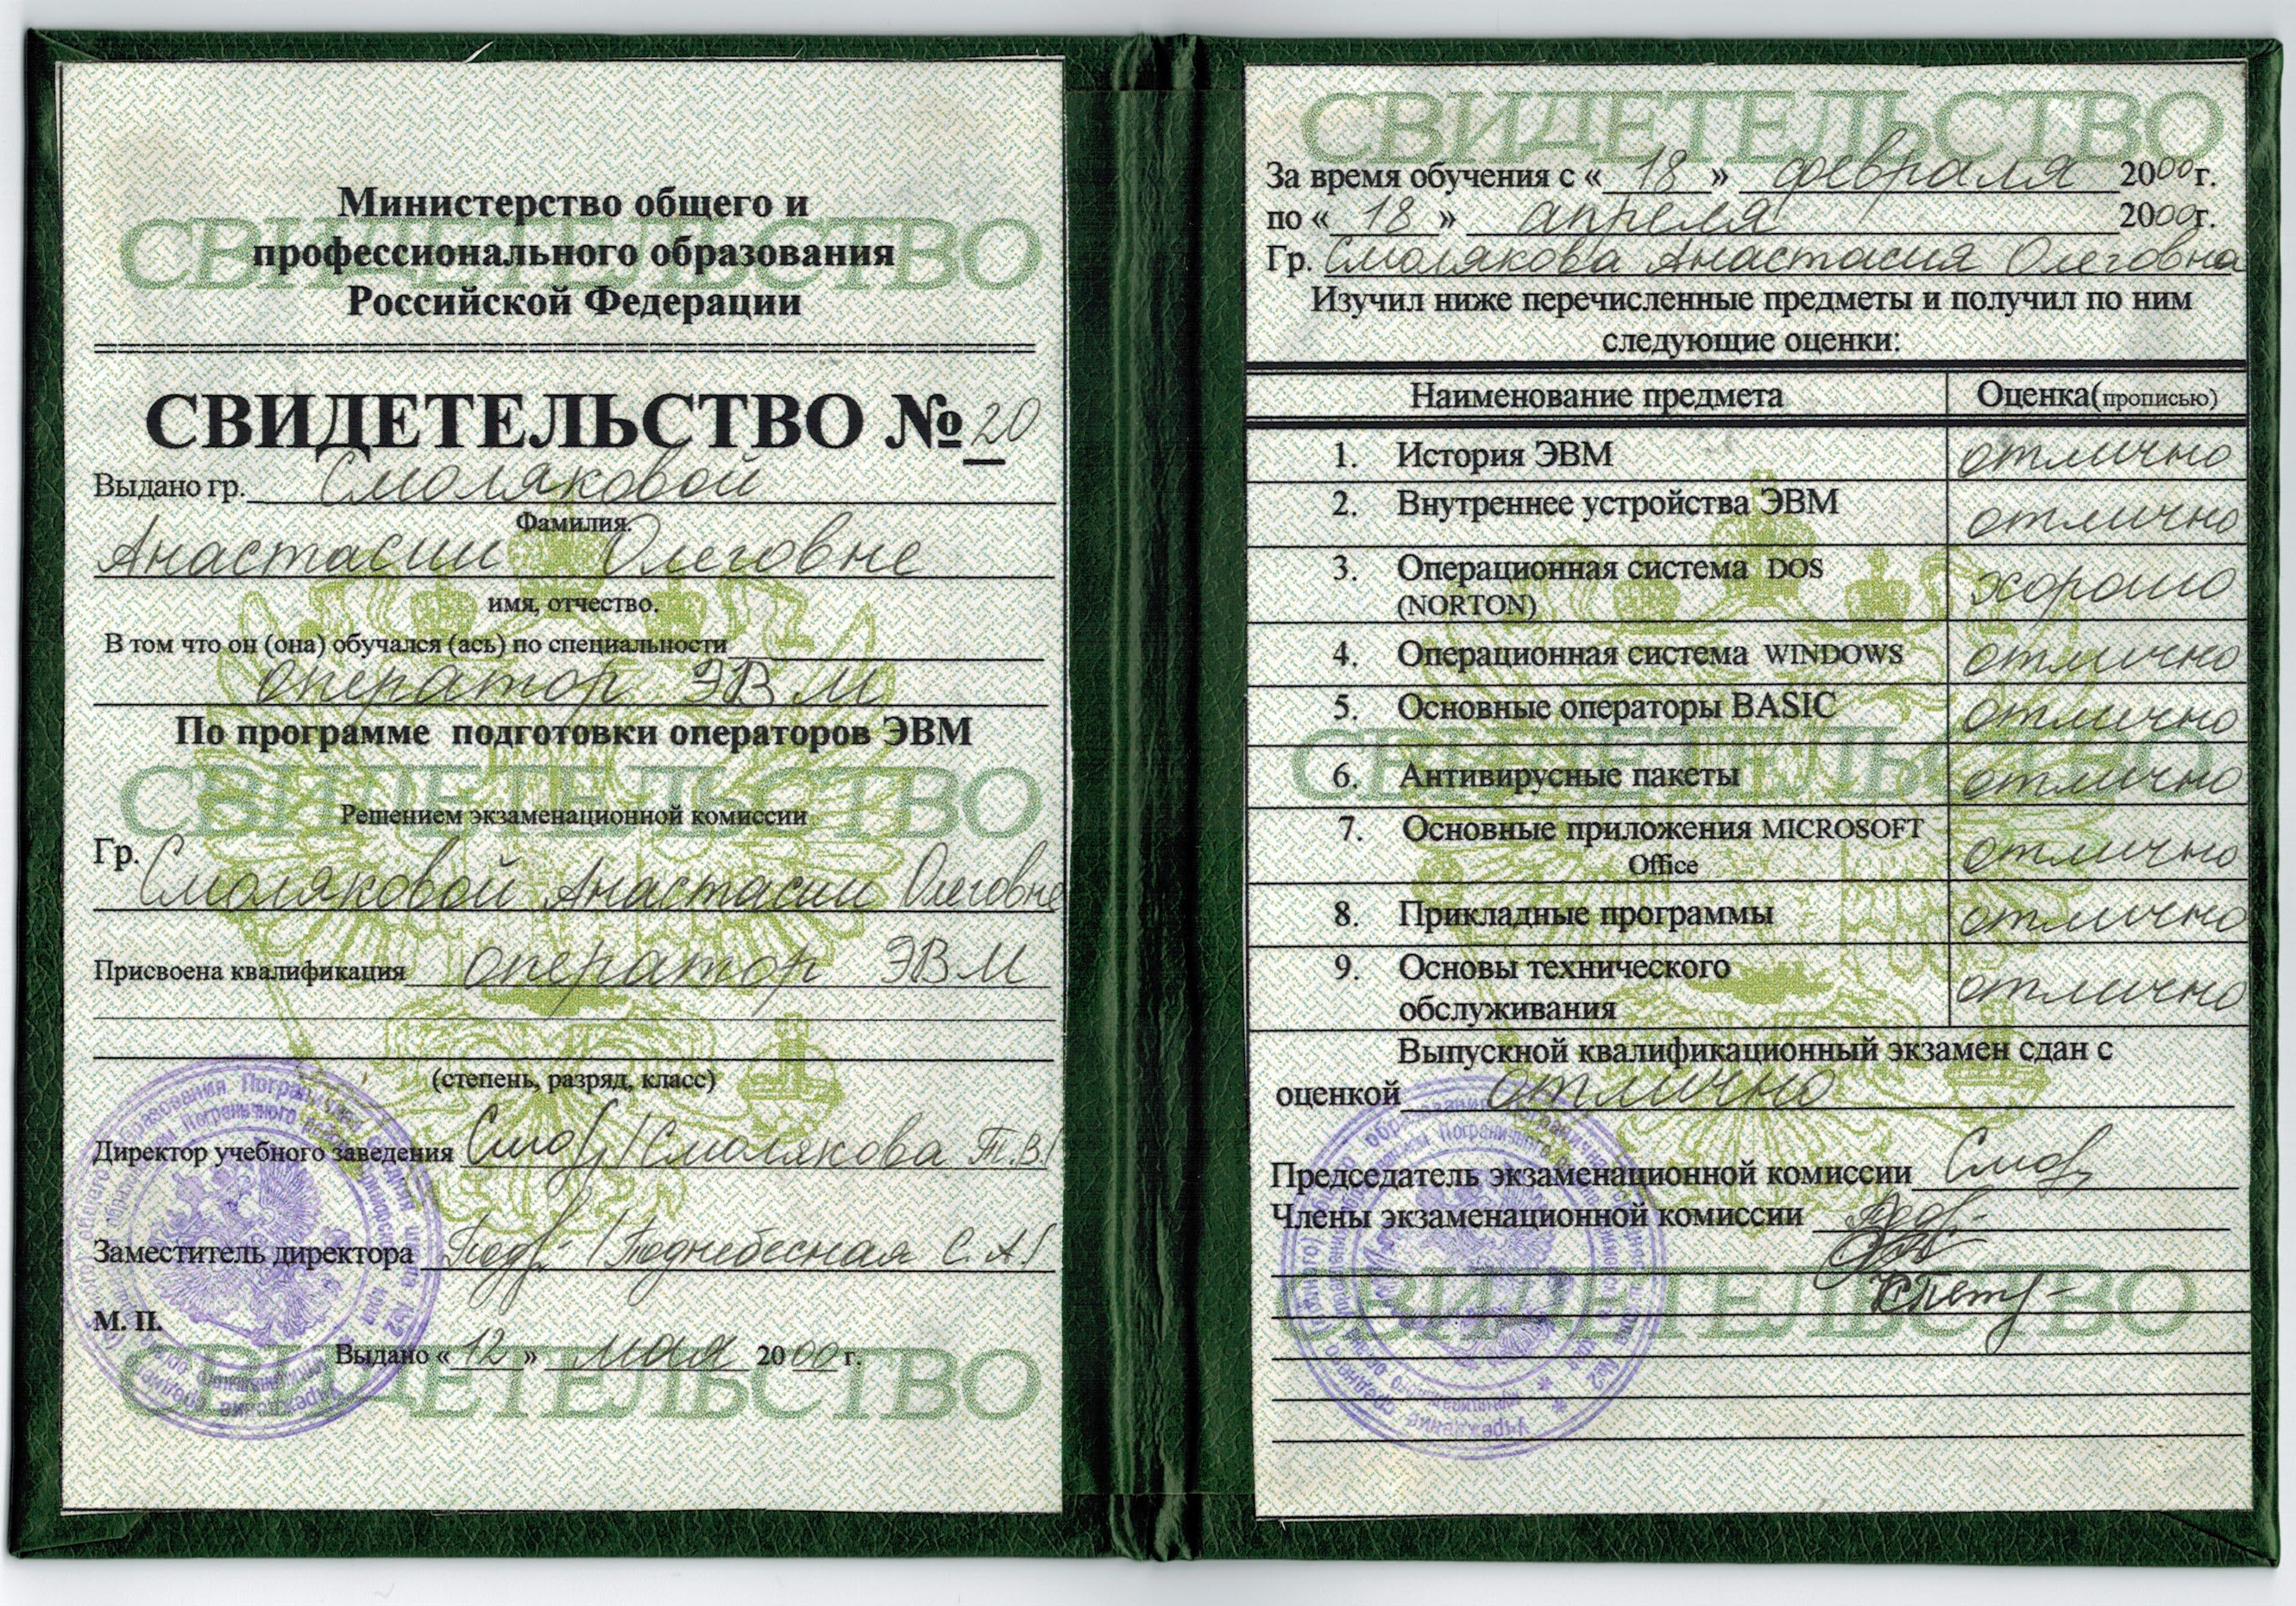 Министерство общего и
профессионального образования
Российской Федерации
СВИДЕТЕЛЬСТВО № 20
Выдано гр. Смоляковой
Фамилия.
Анастасии Олеговне
имя, отчество.
В том что он (она) обучался (ась) по специальности
оператор ЭВМ
По программе подготовки операторов ЭВМ
Решением экзаменационной комиссии
Гр. Смоляковой Анастасии Олеговне
Присвоена квалификация оператор ЭВМ
(степень, разряд, класс)
Директор учебного заведения /Смолякова Т.В/
Заместитель директора /Поднебесная С.А/
М. П.
Выдано «12» мая 2000 г.
СВИДЕТЕЛЬСТВО
За время обучения с «18» февраля 2000г.
по «18» апреля 2000г.
Гр. Смолякова Анастасия Олеговна
Изучил ниже перечисленные предметы и получил по ним
следующие оценки:
Наименование предмета Оценка(прописью)
1. История ЭВМ отлично
2. Внутреннее устройства ЭВМ отлично
3. Операционная система DOS
(NORTON) хорошо
4. Операционная система WINDOWS отлично
5. Основные операторы BASIC отлично
6. Антивирусные пакеты отлично
7. Основные приложения MICROSOFT
Office отлично
8. Прикладные программы отлично
9. Основы технического
обслуживания отлично
Выпускной квалификационный экзамен сдан с
оценкой отлично
Председатель экзаменационной комиссии
Члены экзаменационной комиссии